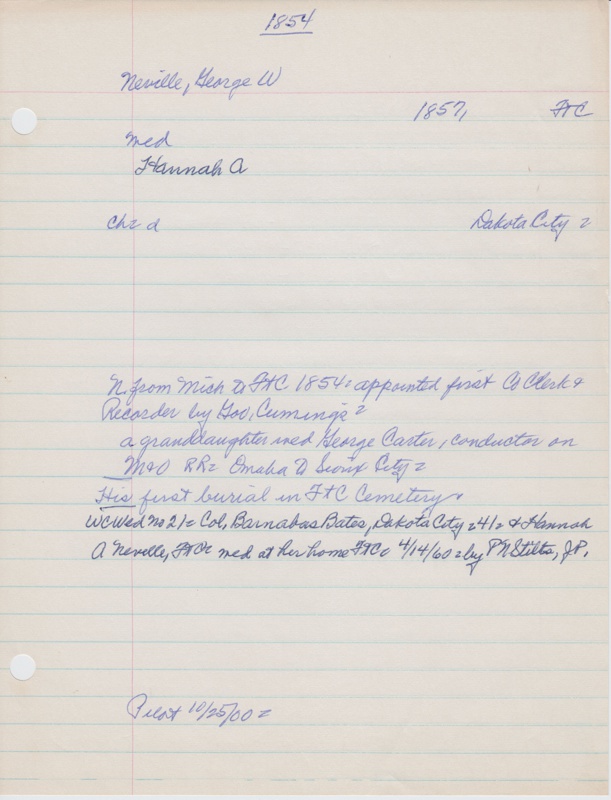 1854
Neville, George W
1857, FtC
med
Hannah A
ch= d Dakota City =
N. from Mich to FtC. 1854= appointed first Co Clerk &
Recorder by Gov, Cumings =
a granddaughter med George Carter, conductor on
M&O RR= Omaha to Sioux City =
His first burial in FtC Cemetery
WCWed No 21= Col, Barnabas Bates, Dakota City =41= & Hannah
A Neville, FtC= med at her home FtC= 4/14/60= by P N Stilts, JP.
Pilot 10/25/00 =